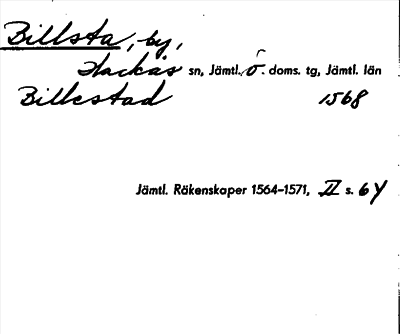 Billsta, by,
Hackås sn, Jämtl. Ö. doms. tg, Jämtl. län
Billestad 1568
Jämtl. Räkenskaper 1564-1571, II s. 64